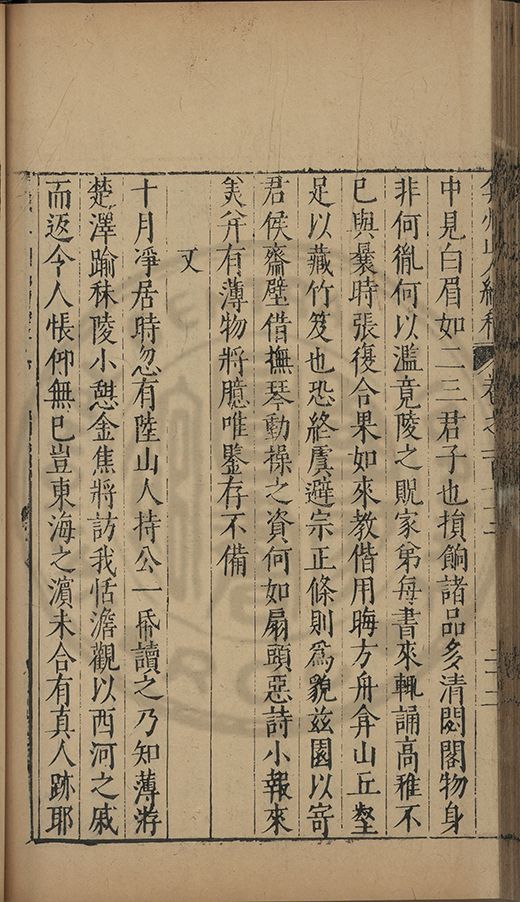 弇州山人續稿 卷之一百
中見白眉如二三君子也損餉諸品多清閟閣物身
非何胤何以濫竟陵之貺家弟每書來輒誦高雅不
已與曩時張復合果如來教偕用晦方舟弇山丘壑
足以藏竹笈也恐終虞避宗正條則爲貌茲園以寄
君侯齋壁借撫琴動操之資何如扇頭惡詩小報來
美并有薄物將臆唯鑒存不備
又
十月凈居時忽有陸山人持公一帋讀之乃知薄游
楚澤踰秣陵小憩金焦將訪我恬澹觀以西河之戚
而返今人悵仰無已豈東海之濵未合有真人跡耶